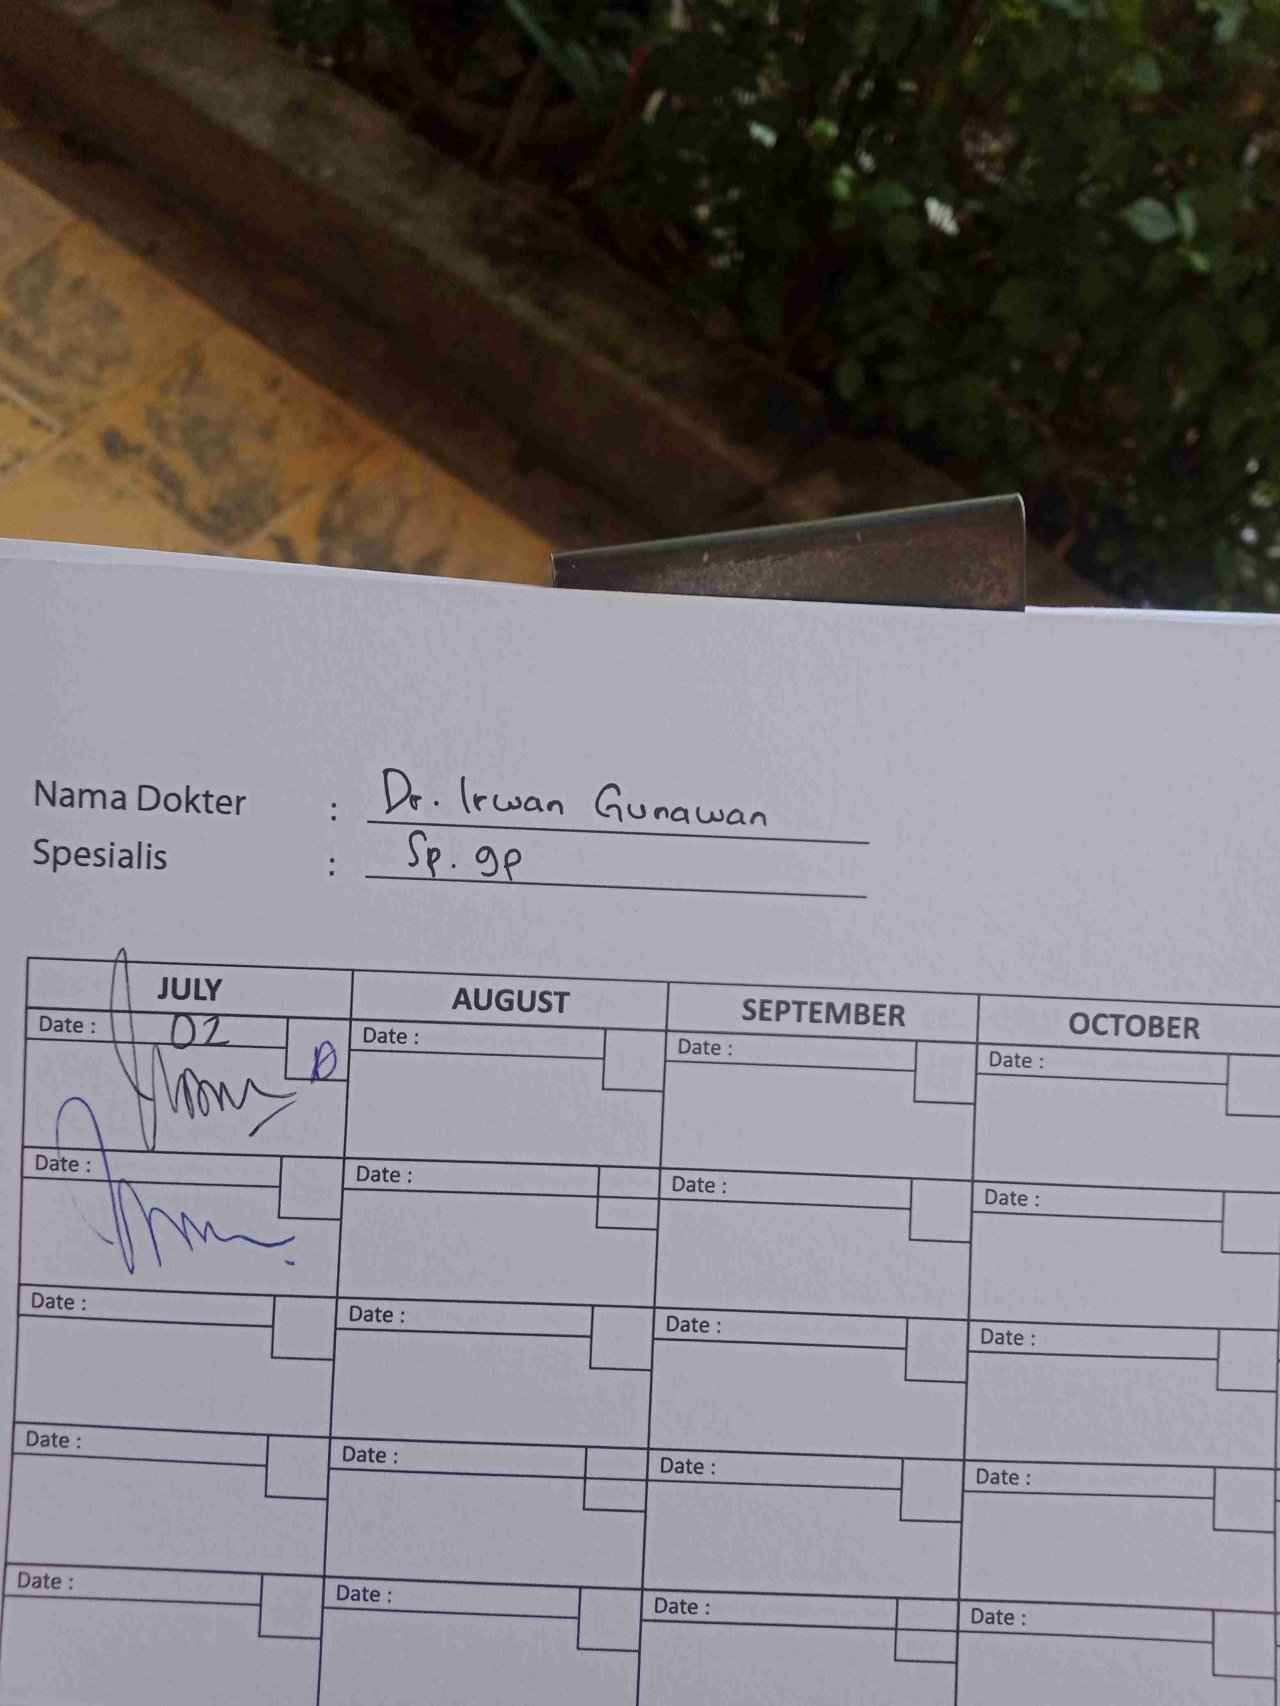 Nama Dokter : Dr. Irwan Gunawan
Spesialis : Sp. gp
JULY AUGUST SEPTEMBER OCTOBER
Date : 02 Date : Date : Date :
Date : Date : Date : Date :
Date : Date : Date : Date :
Date : Date : Date : Date :
Date : Date : Date : Date :